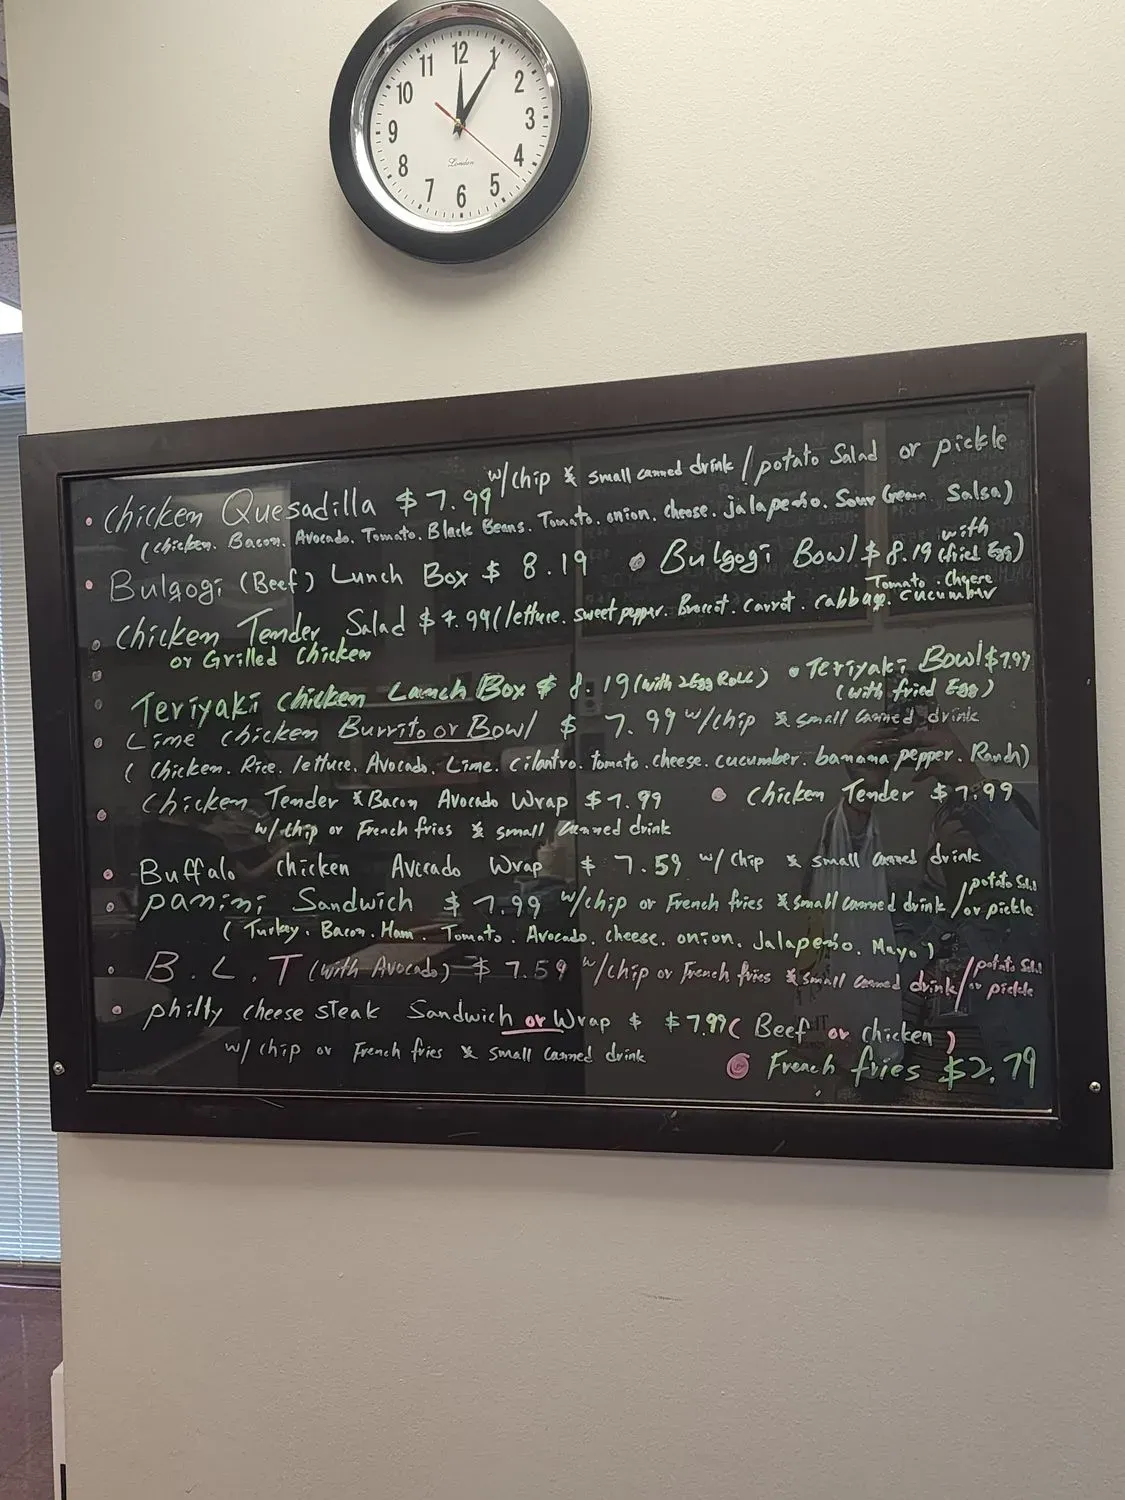 12
1
2
3
4
5
6
7
8
9
10
11
London
w/chip & small canned drink / potato Salad or pickle
• Chicken Quesadilla $7.99
(Chicken. Bacon. Avocado. Tomato. Black Beans. Tomato. onion. cheese. jalapeño. Sour Cream Salsa)
• Bulgogi (Beef) Lunch Box $ 8.19 • Bulgogi Bowl $8.19 with (fried Egg)
Tomato. Cheese
• Chicken Tender Salad $7.99 (lettuce. sweet pepper. Carrot. cabbage. cucumber
or Grilled Chicken
• Teriyaki chicken Lunch Box $ 8.19 (with 2 Egg Roll) • Teriyaki Bowl $7.99
(with fried Egg)
• Lime chicken Burrito or Bowl $ 7.99 w/chip & small canned drink
(Chicken. Rice. lettuce. Avocado. Lime. Cilantro. tomato. cheese. cucumber. banana pepper. Ranch)
• Chicken Tender & Bacon Avocado Wrap $7.99 • Chicken Tender $7.99
w/chip or French fries & small canned drink
• Buffalo chicken Avocado Wrap $ 7.59 w/chip & small canned drink
• Panini Sandwich $ 7.99 w/chip or French fries & small canned drink / potato Salad or pickle
(Turkey. Bacon. Ham. Tomato. Avocado. cheese. onion. Jalapeño. Mayo)
• B.L.T (with Avocado) $ 7.59 w/chip or French fries & small canned drink / potato Salad or pickle
• philly cheese steak Sandwich or Wrap $ $7.99 (Beef or chicken)
w/chip or French fries & small canned drink
• French fries $2.79